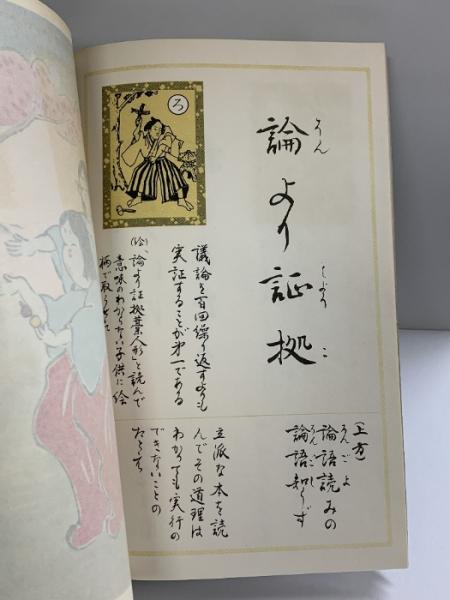 ろ
論より証拠
ろん
しょうこ
議論を百回繰り返すよりも
実証することが第一である
(絵)、「論より証拠藁人形」と読んで
意味のわからない子供に絵
柄で取らせて
(上方)
論語読みの
ろんごよ
論語知らず
ろんごし
立派な本を読
んでその道理は
わかっても実行の
できないことの
たとえ